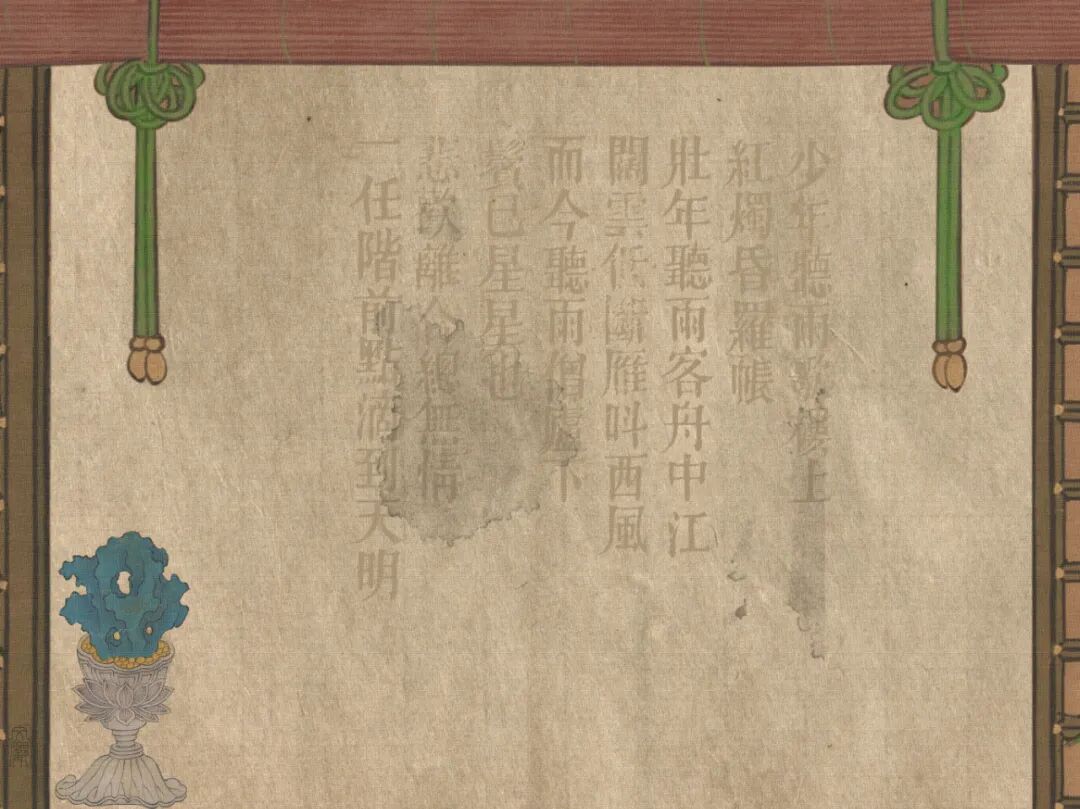 少年聽雨歌樓上
紅燭昏羅帳
壯年聽雨客舟中江
闊雲低斷雁叫西風
而今聽雨僧廬下
鬢已星星也
悲歡離合總無情
一任階前點滴到天明